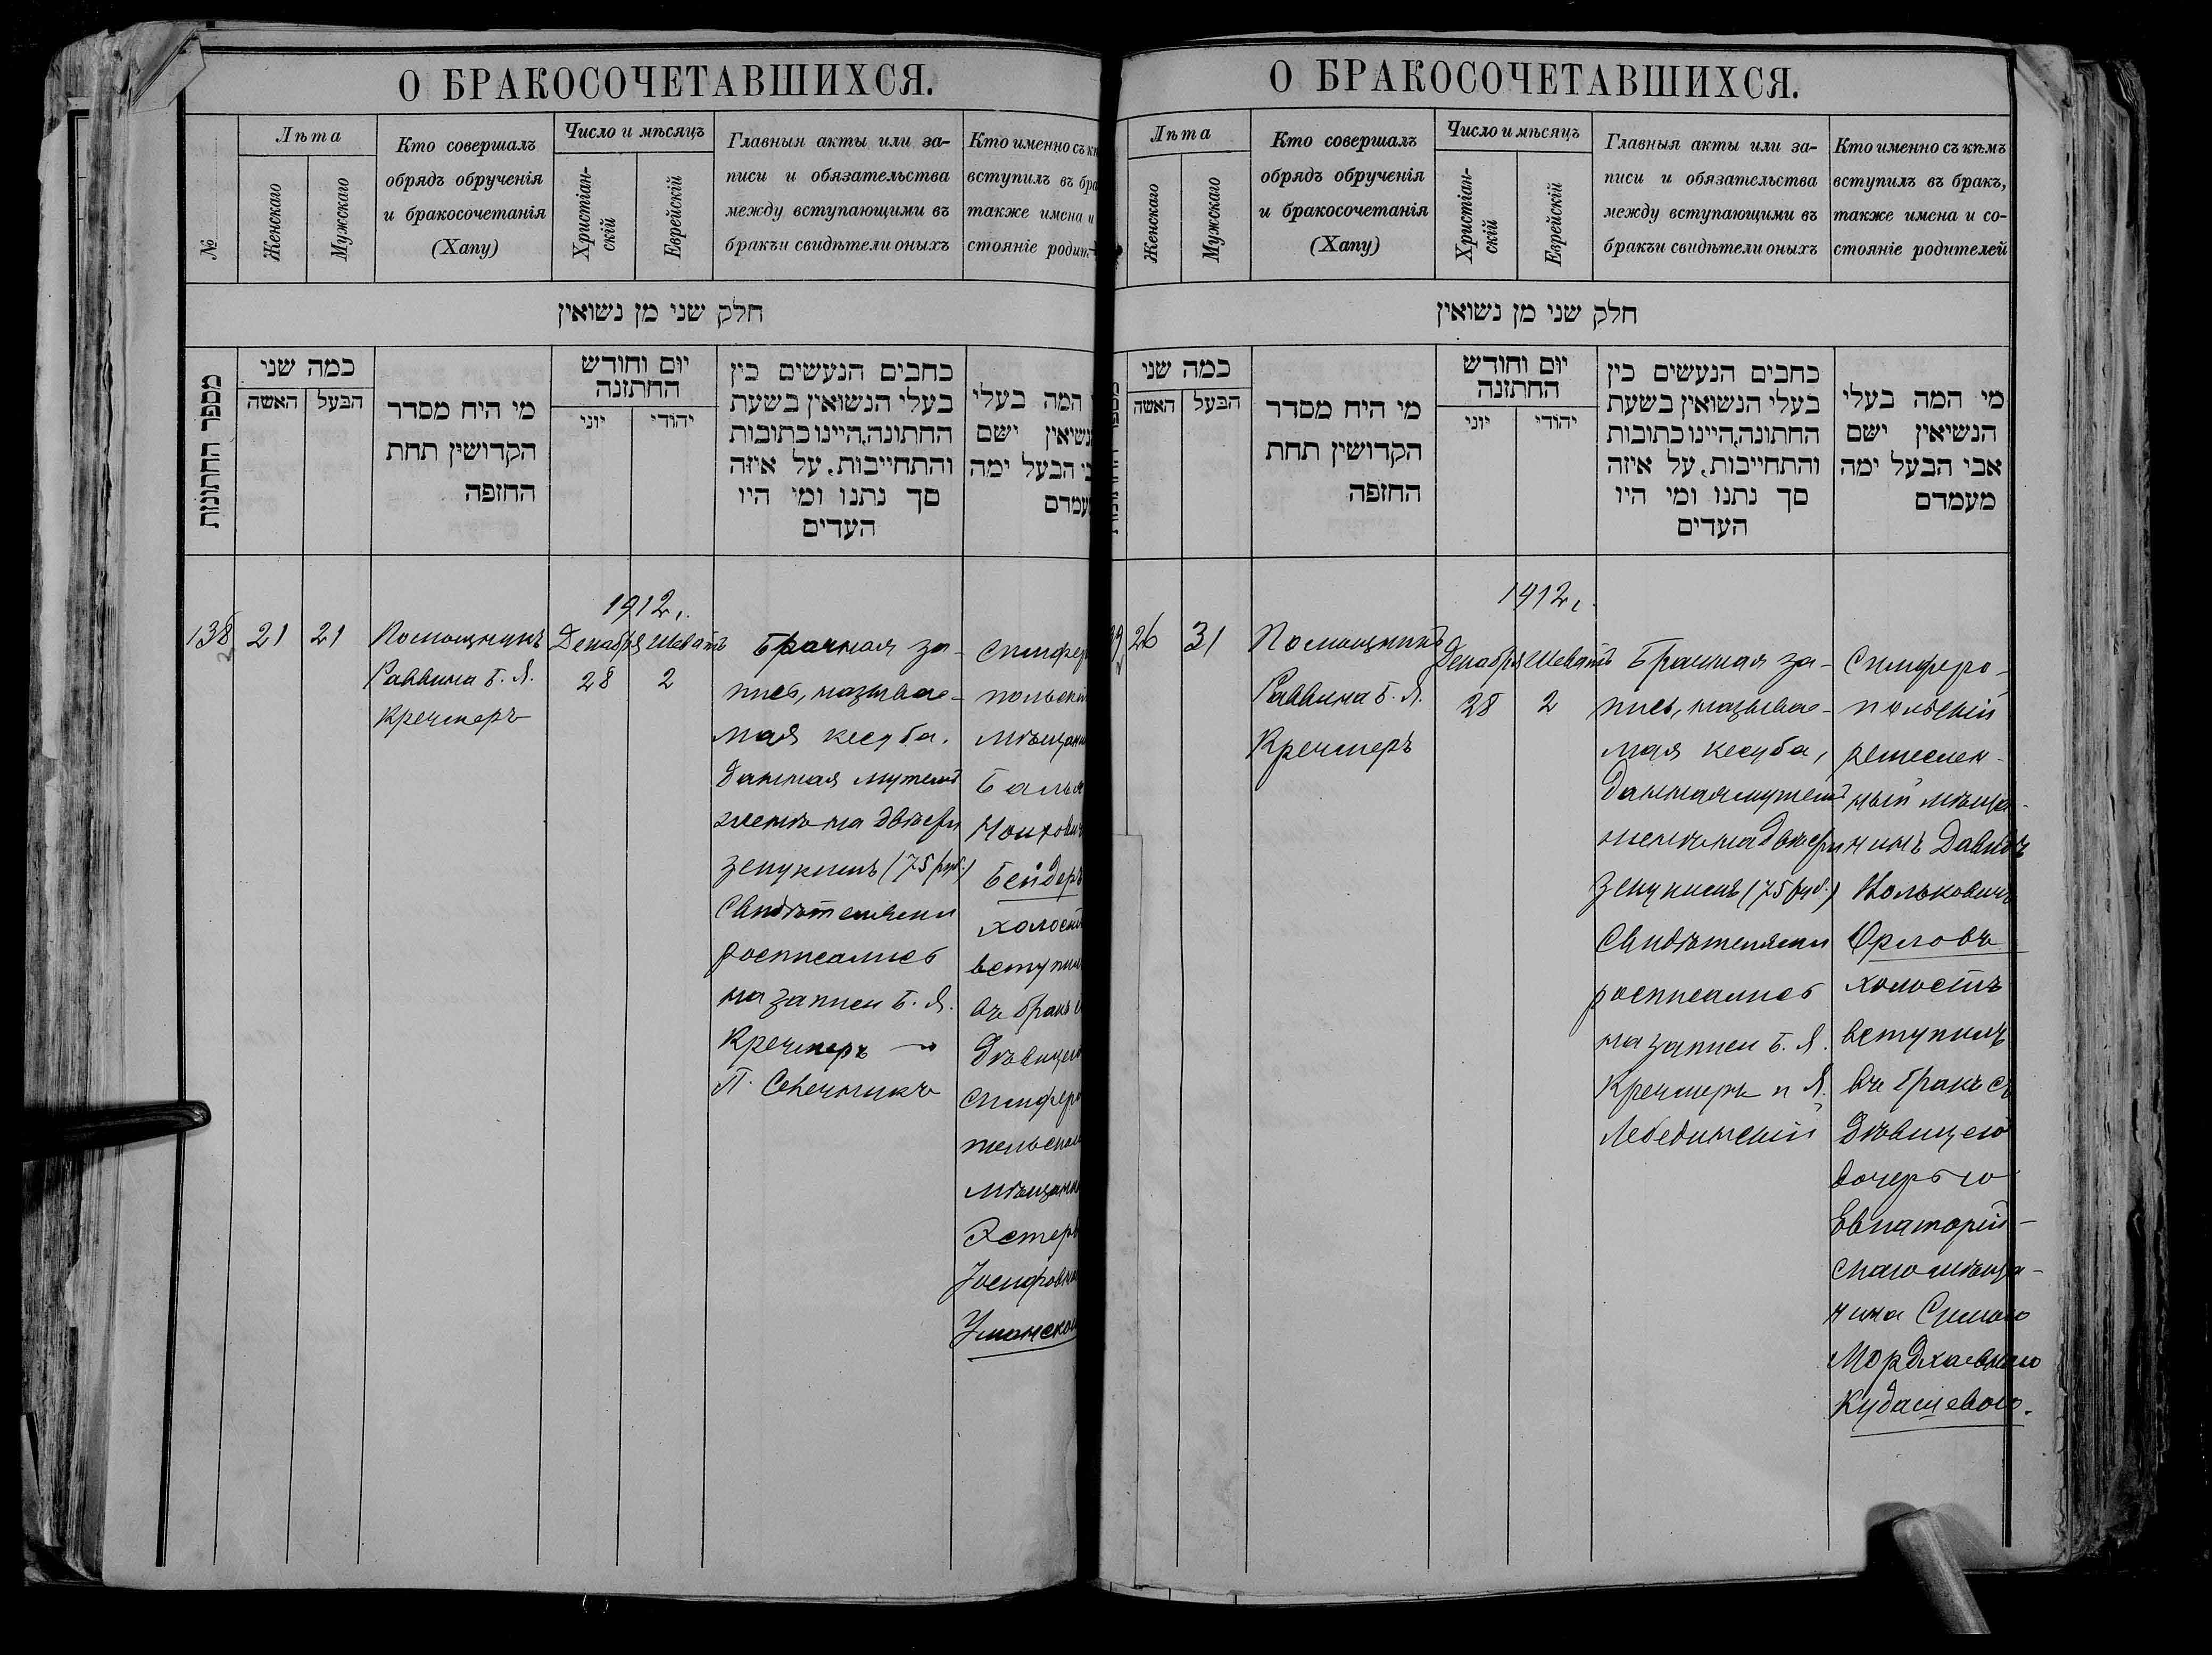 О БРАКОСОЧЕТАВШИХСЯ.
№
Лѣта
Женскаго
Мужскаго
Кто совершалъ
обрядъ обрученія
и бракосочетанія
(Хапу)
Число и мѣсяцъ
Христіан-
скій
Еврейскій
Главныя акты или за-
писи и обязательства
между вступающими въ
бракъи свидѣтели оныхъ
Кто именно съ
вступилъ въ бра
также имена и
стояніе родит
חלק שני מן נשואין
מספר החתונות
כמה שני
האשה
הבעל
מי היח מסדר
הקדושין תחת
החופה
יום וחודש
החתונה
יוני
יהודי
כחבים הנעשים כין
בעלי הנשואין בשעת
החתונה,היינו כתובות
והתחייבות, על איזה
סך נתנו ומי היו
העדים
המה בעלי
נשיאין ישם
בי הבעל ימה
עמדם
1912 г.
138
21
21
Помощникъ
Раввина Б. Я.
Кречмеръ
Декабря
28
Шеватъ
2
Брачная за-
пись, называе-
мая кесуба,
данная мужемъ
женѣ на двѣсти
зекукимъ (75 руб.)
Свидѣтелями
росписались
на записи Б. Я.
Кречмеръ
П. Свечникъ
Симферо
польскі
мѣщани
Бейдеръ
холостъ
вступил
въ бракъ с
дѣвицею
Симферо
польскою
мѣщанк
Эстеръ
Іосифовно
Уманскою
О БРАКОСОЧЕТАВШИХСЯ.
Лѣта
Женскаго
Мужскаго
Кто совершалъ
обрядъ обрученія
и бракосочетанія
(Хапу)
Число и мѣсяцъ
Христіан-
скій
Еврейскій
Главныя акты или за-
писи и обязательства
между вступающими въ
бракъи свидѣтели оныхъ
Кто именно съ кѣмъ
вступилъ въ бракъ,
также имена и со-
стояніе родителей
חלק שני מן נשואין
כמה שני
האשה
הבעל
מי היח מסדר
הקדושין תחת
החופה
יום וחודש
החתונה
יוני
יהודי
כחבים הנעשים כין
בעלי הנשואין בשעת
החתונה,היינו כתובות
והתחייבות, על איזה
סך נתנו ומי היו
העדים
מי המה בעלי
הנשיאין ישם
אבי הבעל ימה
מעמדם
1912 г.
26
31
Помощникъ
Раввина Б. Я.
Кречмеръ
Декабря
28
Шеватъ
2
Брачная за-
пись, называе-
мая кесуба,
данная мужемъ
женѣ на двѣсти
зекукимъ (75 руб.)
Свидѣтелями
росписались
на записи Б. Я.
Кречмеръ и Я.
Лебединскій
Симферо-
польскій
ремеслен-
ный мѣща-
нинъ Давидъ
Нольковичъ
Орловъ
холостъ
вступилъ
въ бракъ съ
дѣвицею
дочерью
Евпаторій-
скаго мѣща-
нина Симою
Мордхаевною
Кудашевою.